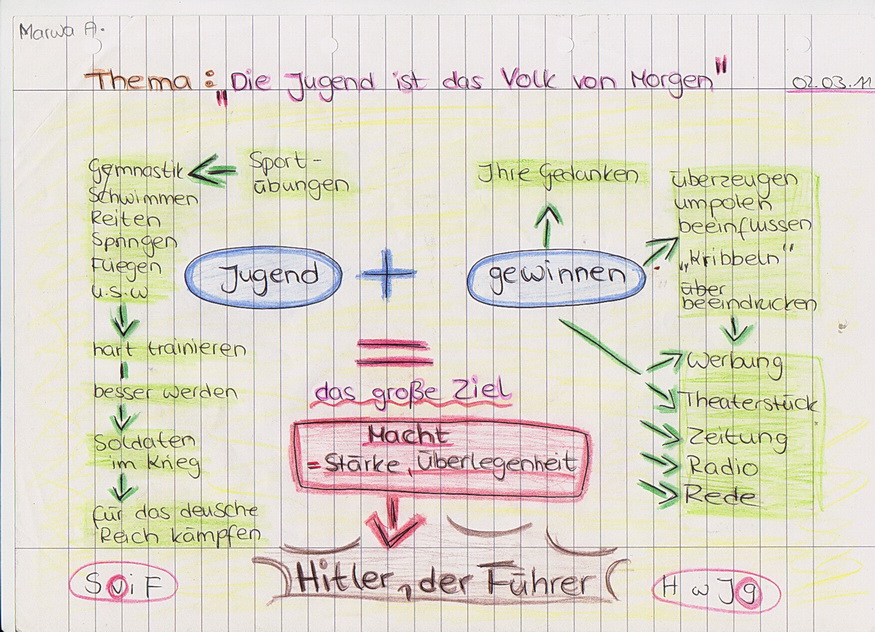 Marwa A.
Thema: "Die Jugend ist das Volk von Morgen"
02.03.11
Sport-
übungen
Gymnastik
Schwimmen
Reiten
Springen
Fliegen
u.s.w
hart trainieren
besser werden
Soldaten
im Krieg
für das deusche
Reich kämpfen
Jugend + gewinnen
Ihre Gedanken
überzeugen
umpolen
beeinflussen
„Kribbeln"
über
beeindrucken
Werbung
Theaterstück
Zeitung
Radio
Rede
=
das große Ziel
Macht
= Stärke, Überlegenheit
Hitler, der Führer
S v i F
H w J g